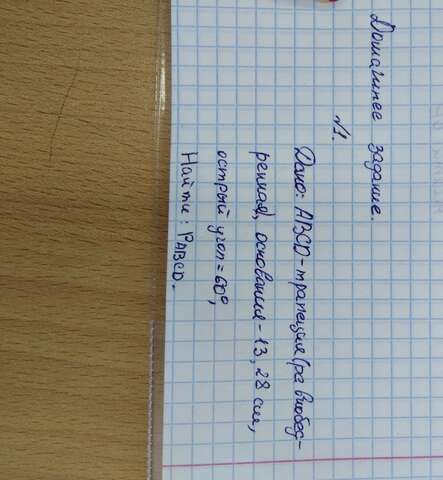 Домашнее задание.
№1.
Дано: ABCD-трапеция (равнобед-
ренная), основания-13, 28 см,
острый угол = 60°,
Найти: PABCD.